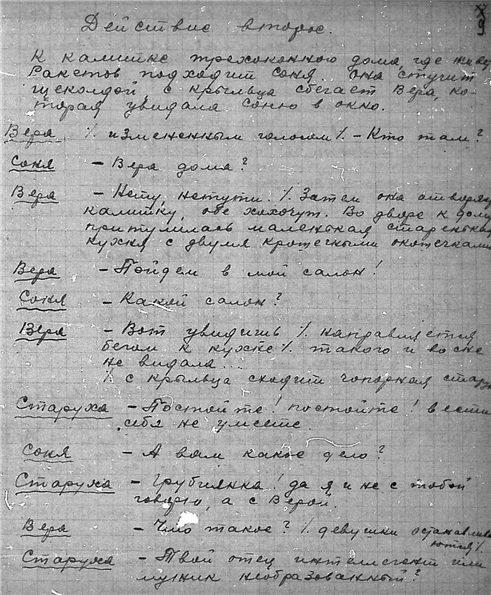 Действие второе.
К калитке трехоконного дома, где живу
Ракетов подходит Соня. Она стучит
щеколдой, с крыльца сбегает Вера, ко-
торая увидала Соню в окно.
Вера /. измененным голосом /. – Кто там?
Соня – Вера дома?
Вера – Нету, нетути. /. Затем она отворяе
калитку, обе хохочут. Во дворе к дому
притулилась маленькая старенькая
кухня с двумя крошечными окошечками
Вера – Пойдем в мой салон!
Соня – Какой салон?
Вера – Вот увидишь /. направляется
бегом к кухне /. такого и во сне
не видала...
/. с крыльца сходит чопорная стару
Старуха – Постойте! постойте! вести
себя не умеете.
Соня – А вам какое дело?
Старуха – Грубиянка! да я и не с тобой
говорю, а с Верой.
Вера – Что такое? /. девушки останавлива
ются /.
Старуха – Твой отец интелегент или
мужик необразованный?